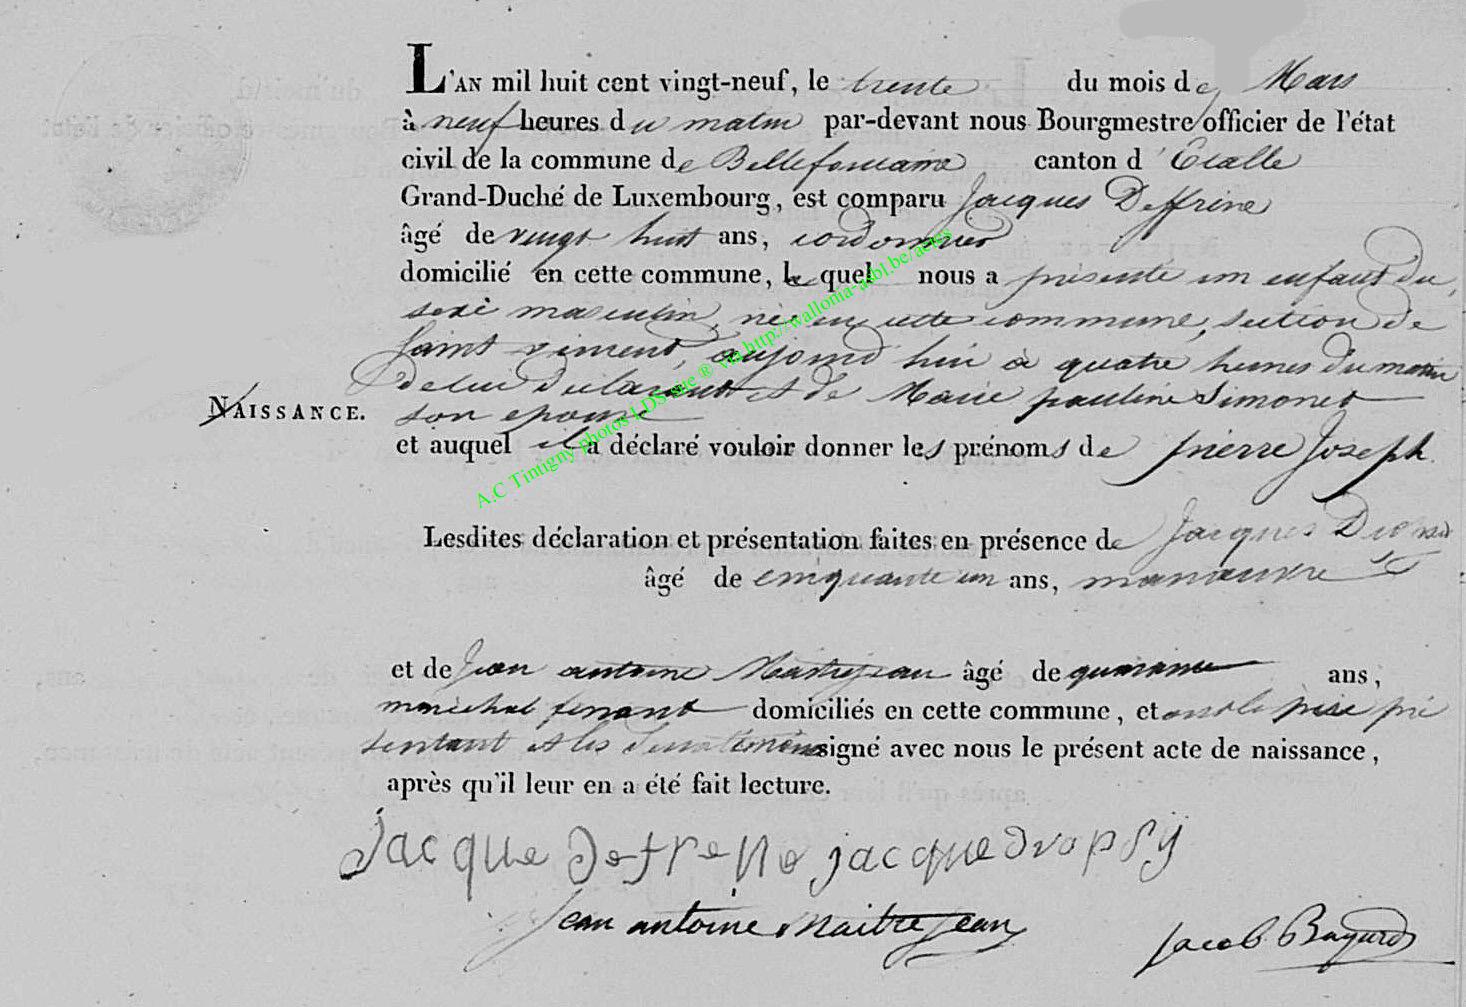 L'AN mil huit cent vingt-neuf, le trente du mois de Mars
à neuf heures du matin par-devant nous Bourgmestre officier de l'état
civil de la commune de Bellefontaine canton d'Etalle
Grand-Duché de Luxembourg, est comparu Jacques Deffrêne
âgé de vingt huit ans, cordonnier
domicilié en cette commune, lequel nous a présenté un enfant du
sexe masculin, né en cette commune, section de
Saint vincent, aujourd'hui à quatre heures du matin
de lui déclarant et de Marie pauline Simonet
NAISSANCE. son epouse
et auquel il a déclaré vouloir donner les prénoms de pierre Joseph.
Lesdites déclaration et présentation faites en présence de Jacques
âgé de cinquante un ans, manœuvre
et de Jean antoine Maitrejean âgé de quarante ans,
maréchal ferrant domiciliés en cette commune, et ont le père pré
sentant et les deux témoins signé avec nous le présent acte de naissance,
après qu'il leur en a été fait lecture.
jacque defrene jacque dropsy
Jean antoine Maitrejean Jacob Bayard
A.C Tintigny photos LDS site ® via http://wallonia-asbl.be/actes